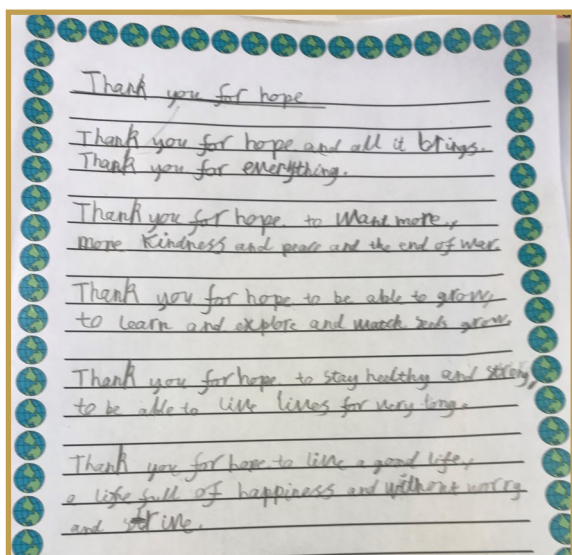 Thank you for hope
Thank you for hope and all it brings.
Thank you for everything.
Thank you for hope to want more,
more kindness and peace and the end of war.
Thank you for hope to be able to grow,
to learn and explore and watch seeds grow.
Thank you for hope to stay healthy and strong,
to be able to live lives for very long.
Thank you for hope to live a good life,
a life full of happiness and without worry
and strive.